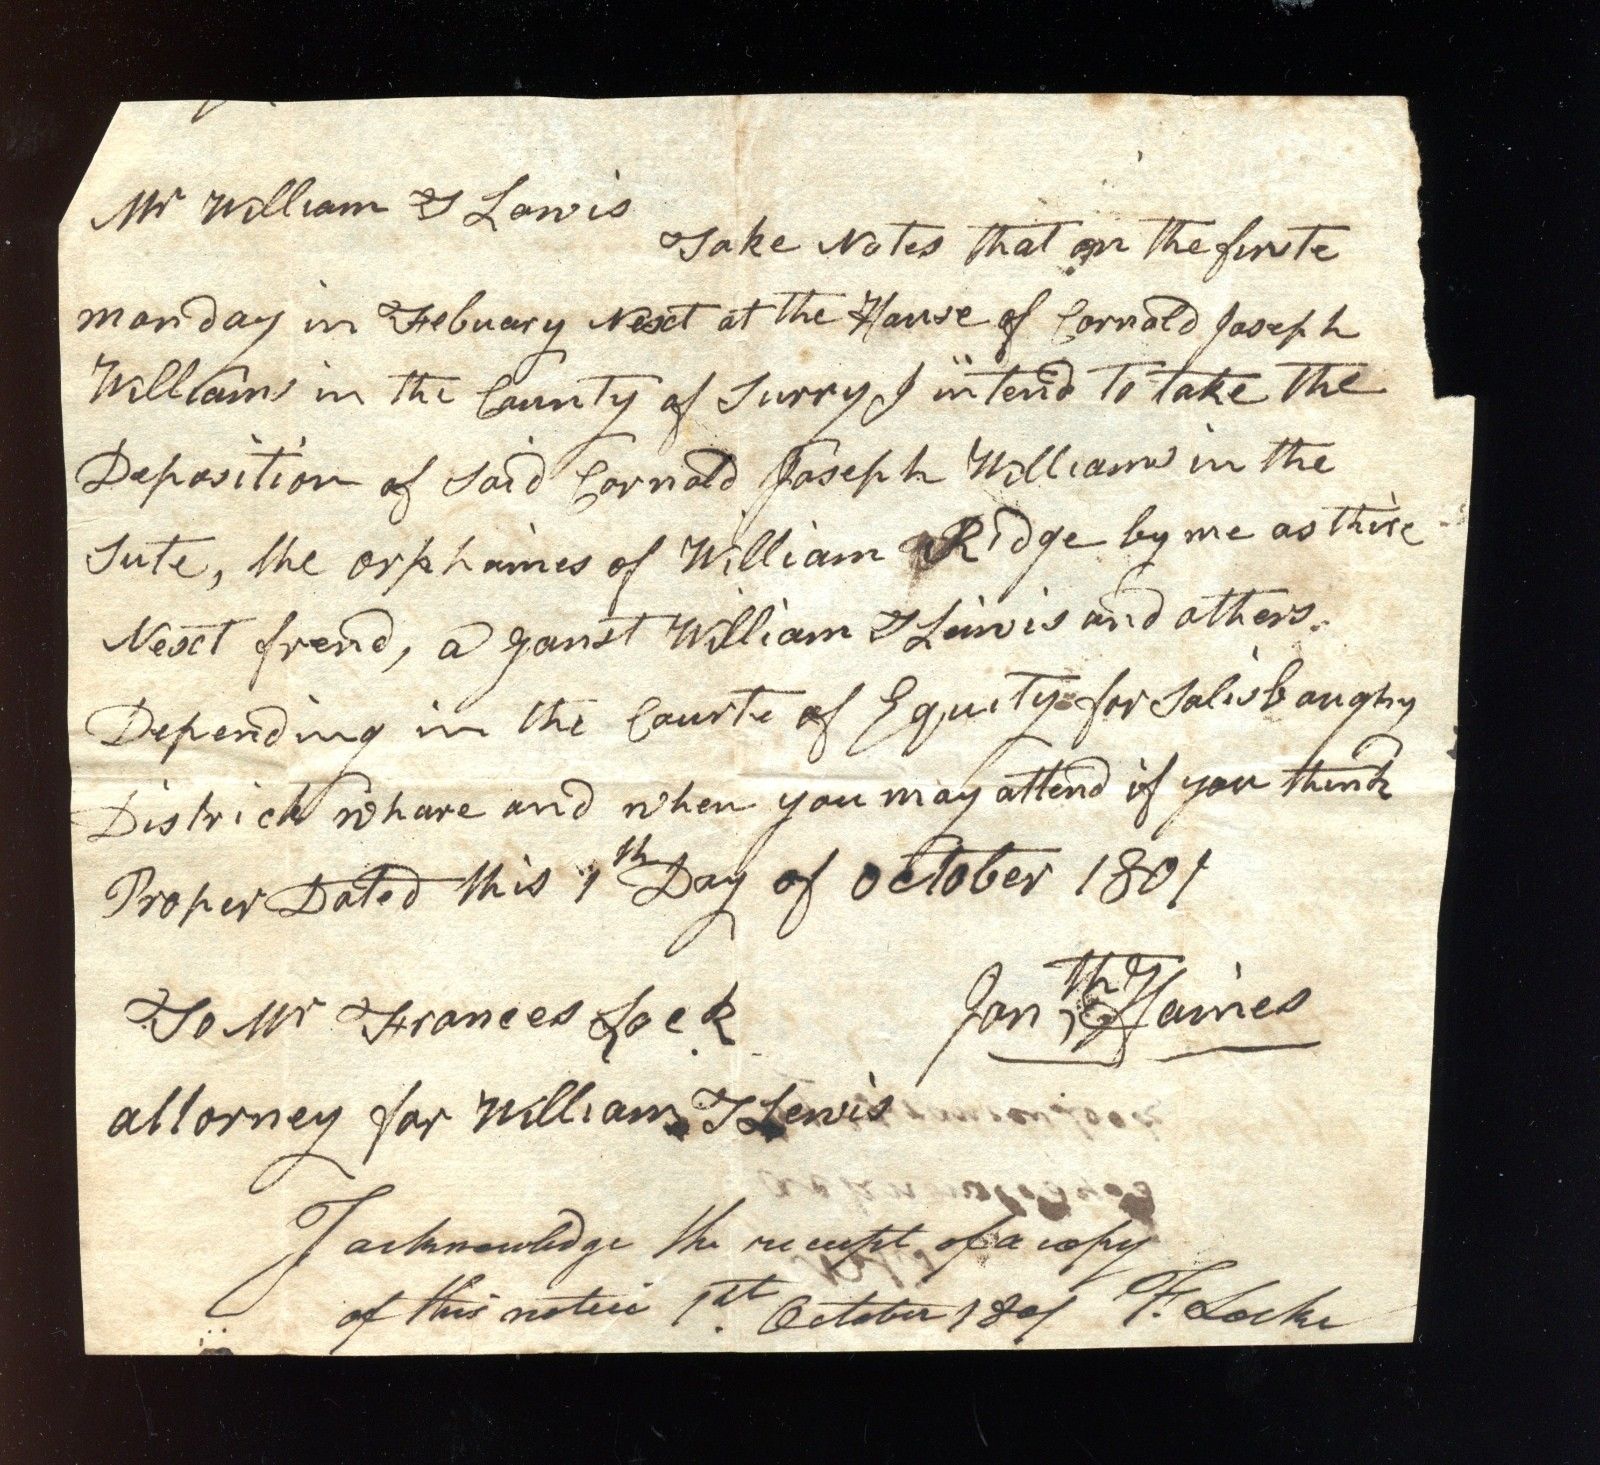 Mr William T Lawis
Take Notes that on the firste
monday in Febuary Next at the House of Cornald Joseph
Williams in the County of Surry I intend to take the
Deposition of Said Cornald Joseph Williams in the
Sute, the orphaines of William Ridge by me as thire
Next frend, a ganst William T Lewis and others.
Depending in the Courte of Equity for Salisbaughy
District whare and when you may attend if you think
Proper Dated this 1th Day of October 1801
Jonth Haines
To Mr Frances Lock
attorney for William T Lewis
I acknowledge the receipt of a copy
of this notice 1st. October 1801 F. Locke